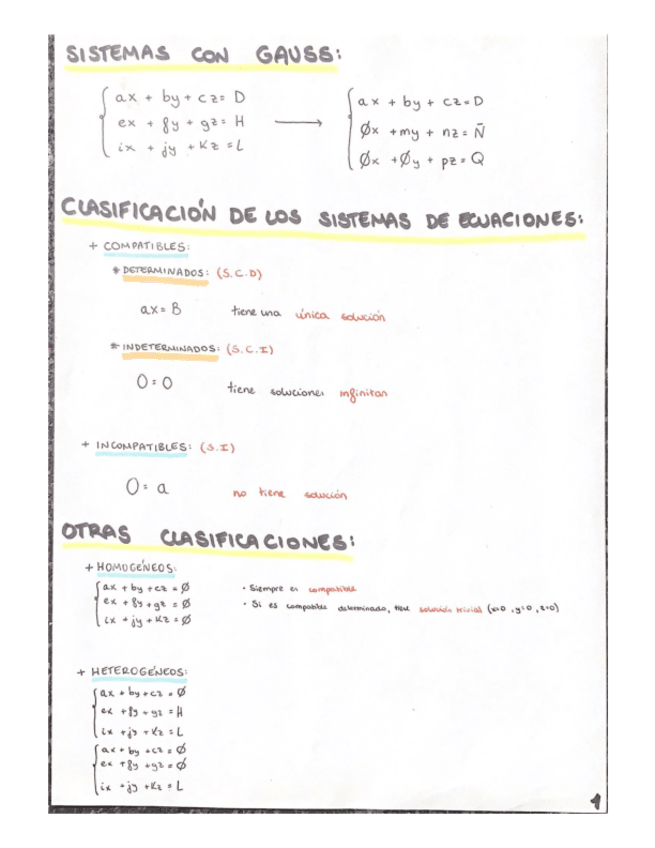 SISTEMAS CON GAUSS:
ax + by + cz = D
ex + fy + gz = H
ix + jy + Kz = L
ax + by + cz = D
Øx + my + nz = Ñ
Øx + Øy + pz = Q
CLASIFICACIÓN DE LOS SISTEMAS DE ECUACIONES:
+ COMPATIBLES:
* DETERMINADOS: (S.C.D)
ax = B tiene una única solución
* INDETERMINADOS: (S.C.I)
0 = 0 tiene soluciones infinitas
+ INCOMPATIBLES: (S.I)
0 = a no tiene solución
OTRAS CLASIFICACIONES:
+ HOMOGÉNEOS:
ax + by + cz = Ø
ex + fy + gz = Ø
ix + jy + Kz = Ø
· Siempre es compatible
· Si es compatible determinado, tiene solución trivial (x=0, y=0, z=0)
+ HETEROGÉNEOS:
ax + by + cz = Ø
ex + fy + gz = H
ix + jy + Kz = L
ax + by + cz = Ø
ex + fy + gz = Ø
ix + jy + Kz = L
1